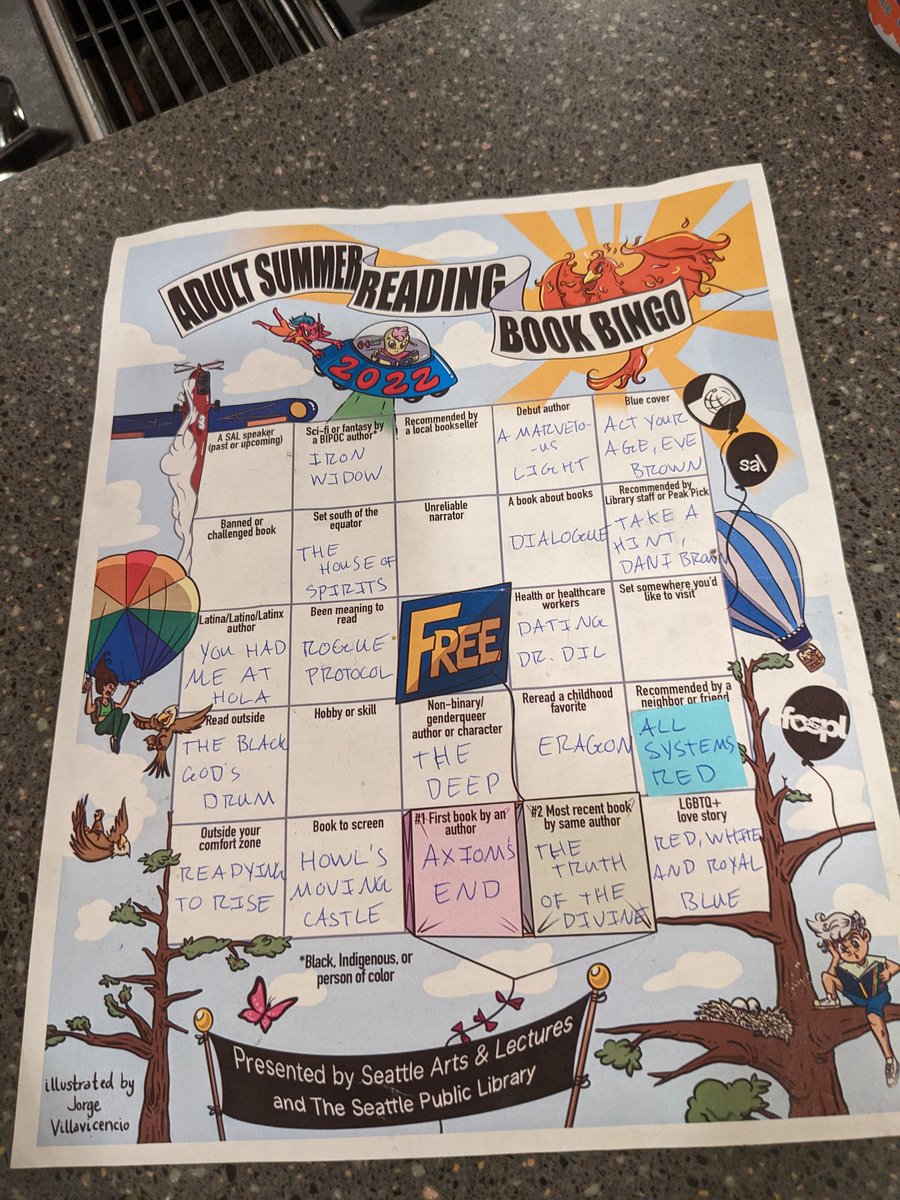 ADULT SUMMER
READING
BOOK BINGO
2022
A SAL speaker
(past or upcoming)
Sci-fi or fantasy by
a BIPOC author*
IRON
WIDOW
Recommended by
a local bookseller
Debut author
A MARVELO-
-US
LIGHT
Blue cover
ACT YOUR
AGE, EVE
BROWN
sal
Banned or
challenged book
Set south of the
equator
THE
HOUSE OF
SPIRITS
Unreliable
narrator
A book about books
DIALOGUE
Recommended by
Library staff or Peak Pick
TAKE A
HINT,
DANI BROWN
Latina/Latino/Latinx
author
YOU HAD
ME AT
HOLA
Been meaning to
read
ROGUE
PROTOCOL
FREE
Health or healthcare
workers
DATING
DR. DIL
Set somewhere you'd
like to visit
Read outside
THE BLACK
GOD'S
DRUM
Hobby or skill
Non-binary/
genderqueer
author or character
THE
DEEP
Reread a childhood
favorite
ERAGON
Recommended by a
neighbor or friend
ALL
SYSTEMS
RED
fospl
Outside your
comfort zone
READYING
TO RISE
Book to screen
HOWL'S
MOVING
CASTLE
#1 First book by an
author
AXIOM'S
END
#2 Most recent book
by same author
THE
TRUTH
OF THE
DIVINE
LGBTQ+
love story
RED, WHITE
AND ROYAL
BLUE
*Black, Indigenous, or
person of color
Presented by Seattle Arts & Lectures
and The Seattle Public Library
illustrated by
Jorge
Villavicencio